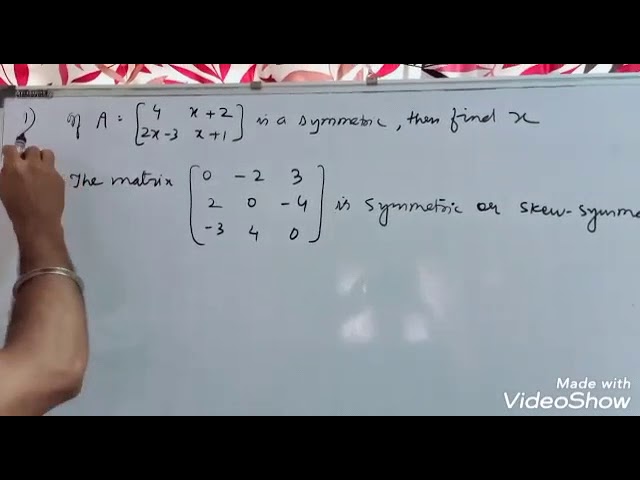 1) If A = [4 x+2 2x-3 x+1] is a symmetric, then find x
The matrix [0 -2 3 2 0 -4 -3 4 0] is symmetric or skew-symme
Made with
VideoShow